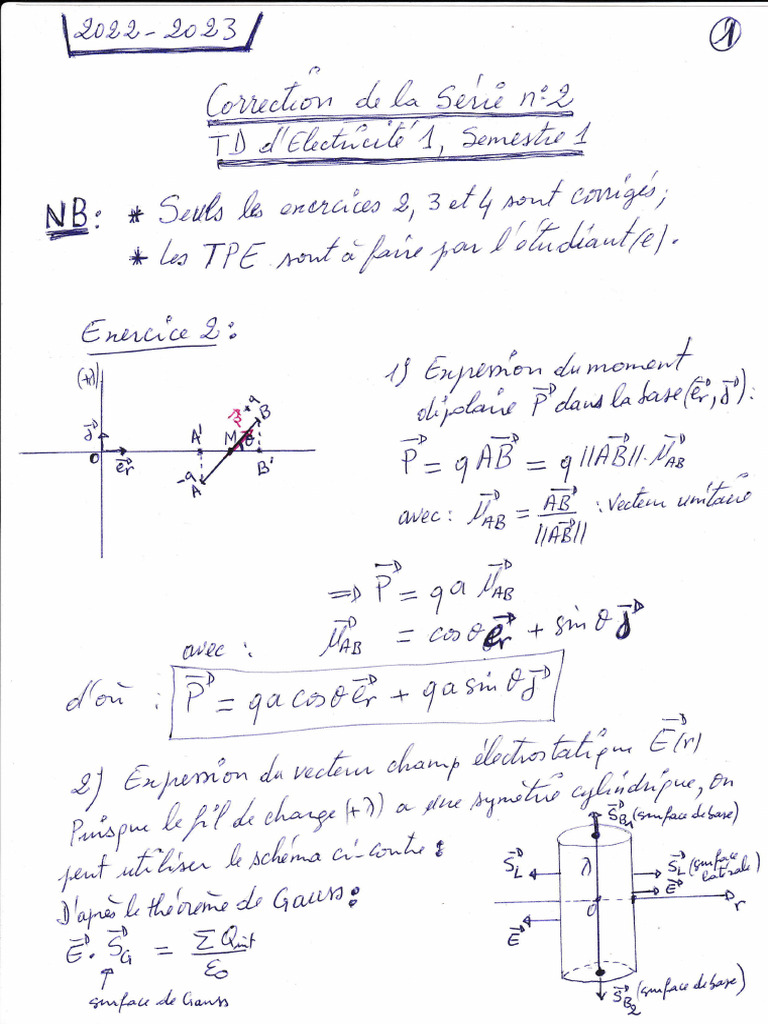 2022-2023
1
Correction de la Série n°2
TD d'Electricité 1, Semestre 1
NB: * Seuls les exercices 2, 3 et 4 sont corrigés;
* Les TPE sont à faire par l'étudiant(e).
Exercice 2:
(+λ)
j⃗
O
e⃗r
A'
M
P⃗
+q
B
θ
B'
-q
A
1) Expression du moment
dipolaire P⃗ dans la base (e⃗r, j⃗):
P⃗ = q AB⃗ = q ||AB⃗||. μ⃗AB
avec: μ⃗AB = AB⃗ / ||AB⃗|| : vecteur unitaire
⇒ P⃗ = qa μ⃗AB
avec: μ⃗AB = cosθ e⃗r + sinθ j⃗
d'où : P⃗ = qa cosθ e⃗r + qa sinθ j⃗
2) Expression du vecteur champ électrostatique E⃗(r)
Puisque le fil de charge (+λ) a une symétrie cylindrique, on
peut utiliser le schéma ci-contre:
D'après le théorème de Gauss:
E⃗ . S⃗G = Σ Qint / ε0
surface de Gauss
S⃗B1 (surface de base)
S⃗L
λ
S⃗L (surface latérale)
E⃗
O
r
E⃗
S⃗B2 (surface de base)